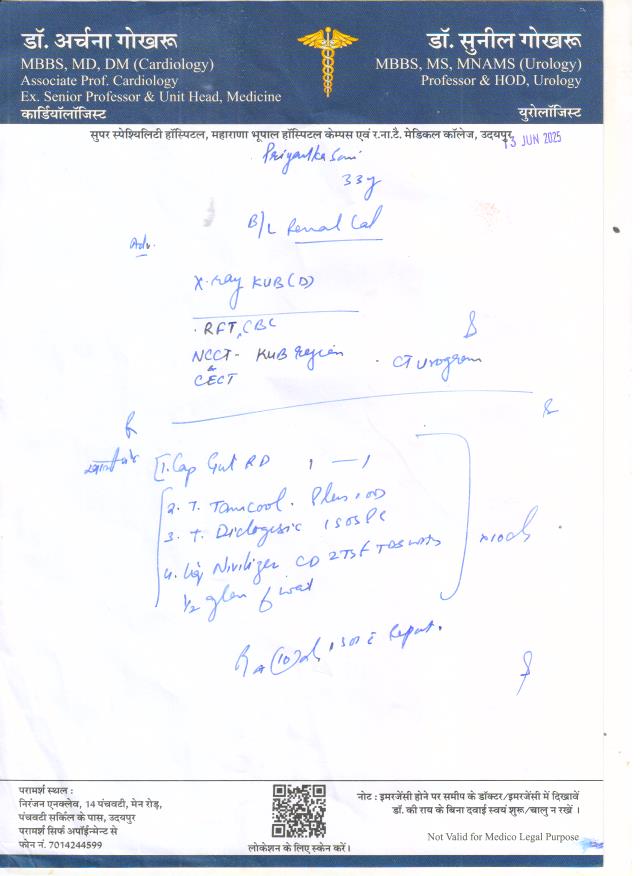 डॉ. अर्चना गोखरू
MBBS, MD, DM (Cardiology)
Associate Prof. Cardiology
Ex. Senior Professor & Unit Head, Medicine
कार्डियॉलॉजिस्ट
डॉ. सुनील गोखरू
MBBS, MS, MNAMS (Urology)
Professor & HOD, Urology
युरोलॉजिस्ट
सुपर स्पेश्यिलिटी हॉस्पिटल, महाराणा भूपाल हॉस्पिटल केम्पस एवं र.ना.टै. मेडिकल कॉलेज, उदयपुर
13 JUN 2025
Priyanka Soni
33y
B/L Renal Cal
Adv.
X-ray KUB (D)
RFT, CBC
NCCT - KUB Region
& CECT
CT Urogram
1. Cap Gut RD 1 — 1
2. T. Tamcool Plus 1 OD
3. T. Diclogesic 1 SOS
4. Liq Nivilizer CD 2TSF TDS
1/2 glass of wat
x10d
(10)d Report.
परामर्श स्थल :
निरंजन एनक्लेव, 14 पंचवटी, मेन रोड़,
पंचवटी सर्किल के पास, उदयपुर
परामर्श सिर्फ अपॉईन्मेन्ट से
फोन नं. 7014244599
लोकेशन के लिए स्केन करें।
नोट : इमरजेंसी होने पर समीप के डॉक्टर/इमरजेंसी में दिखावें
डॉ. की राय के बिना दवाई स्वयं शुरू/चालु न रखें ।
Not Valid for Medico Legal Purpose